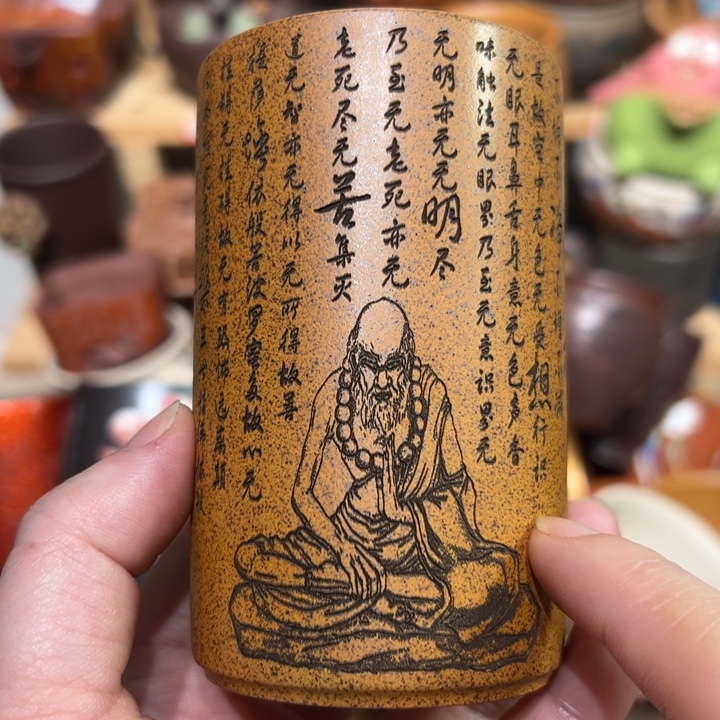 是故空中无色无受想行识
无眼耳鼻舌身意无色声香
味触法无眼界乃至无意识界无
无明亦无无明尽
乃至无老死亦无
老死尽无苦集灭
道无智亦无得以无所得故菩
提萨埵依般若波罗蜜多故心无
挂碍无挂碍故无有恐怖远离颠